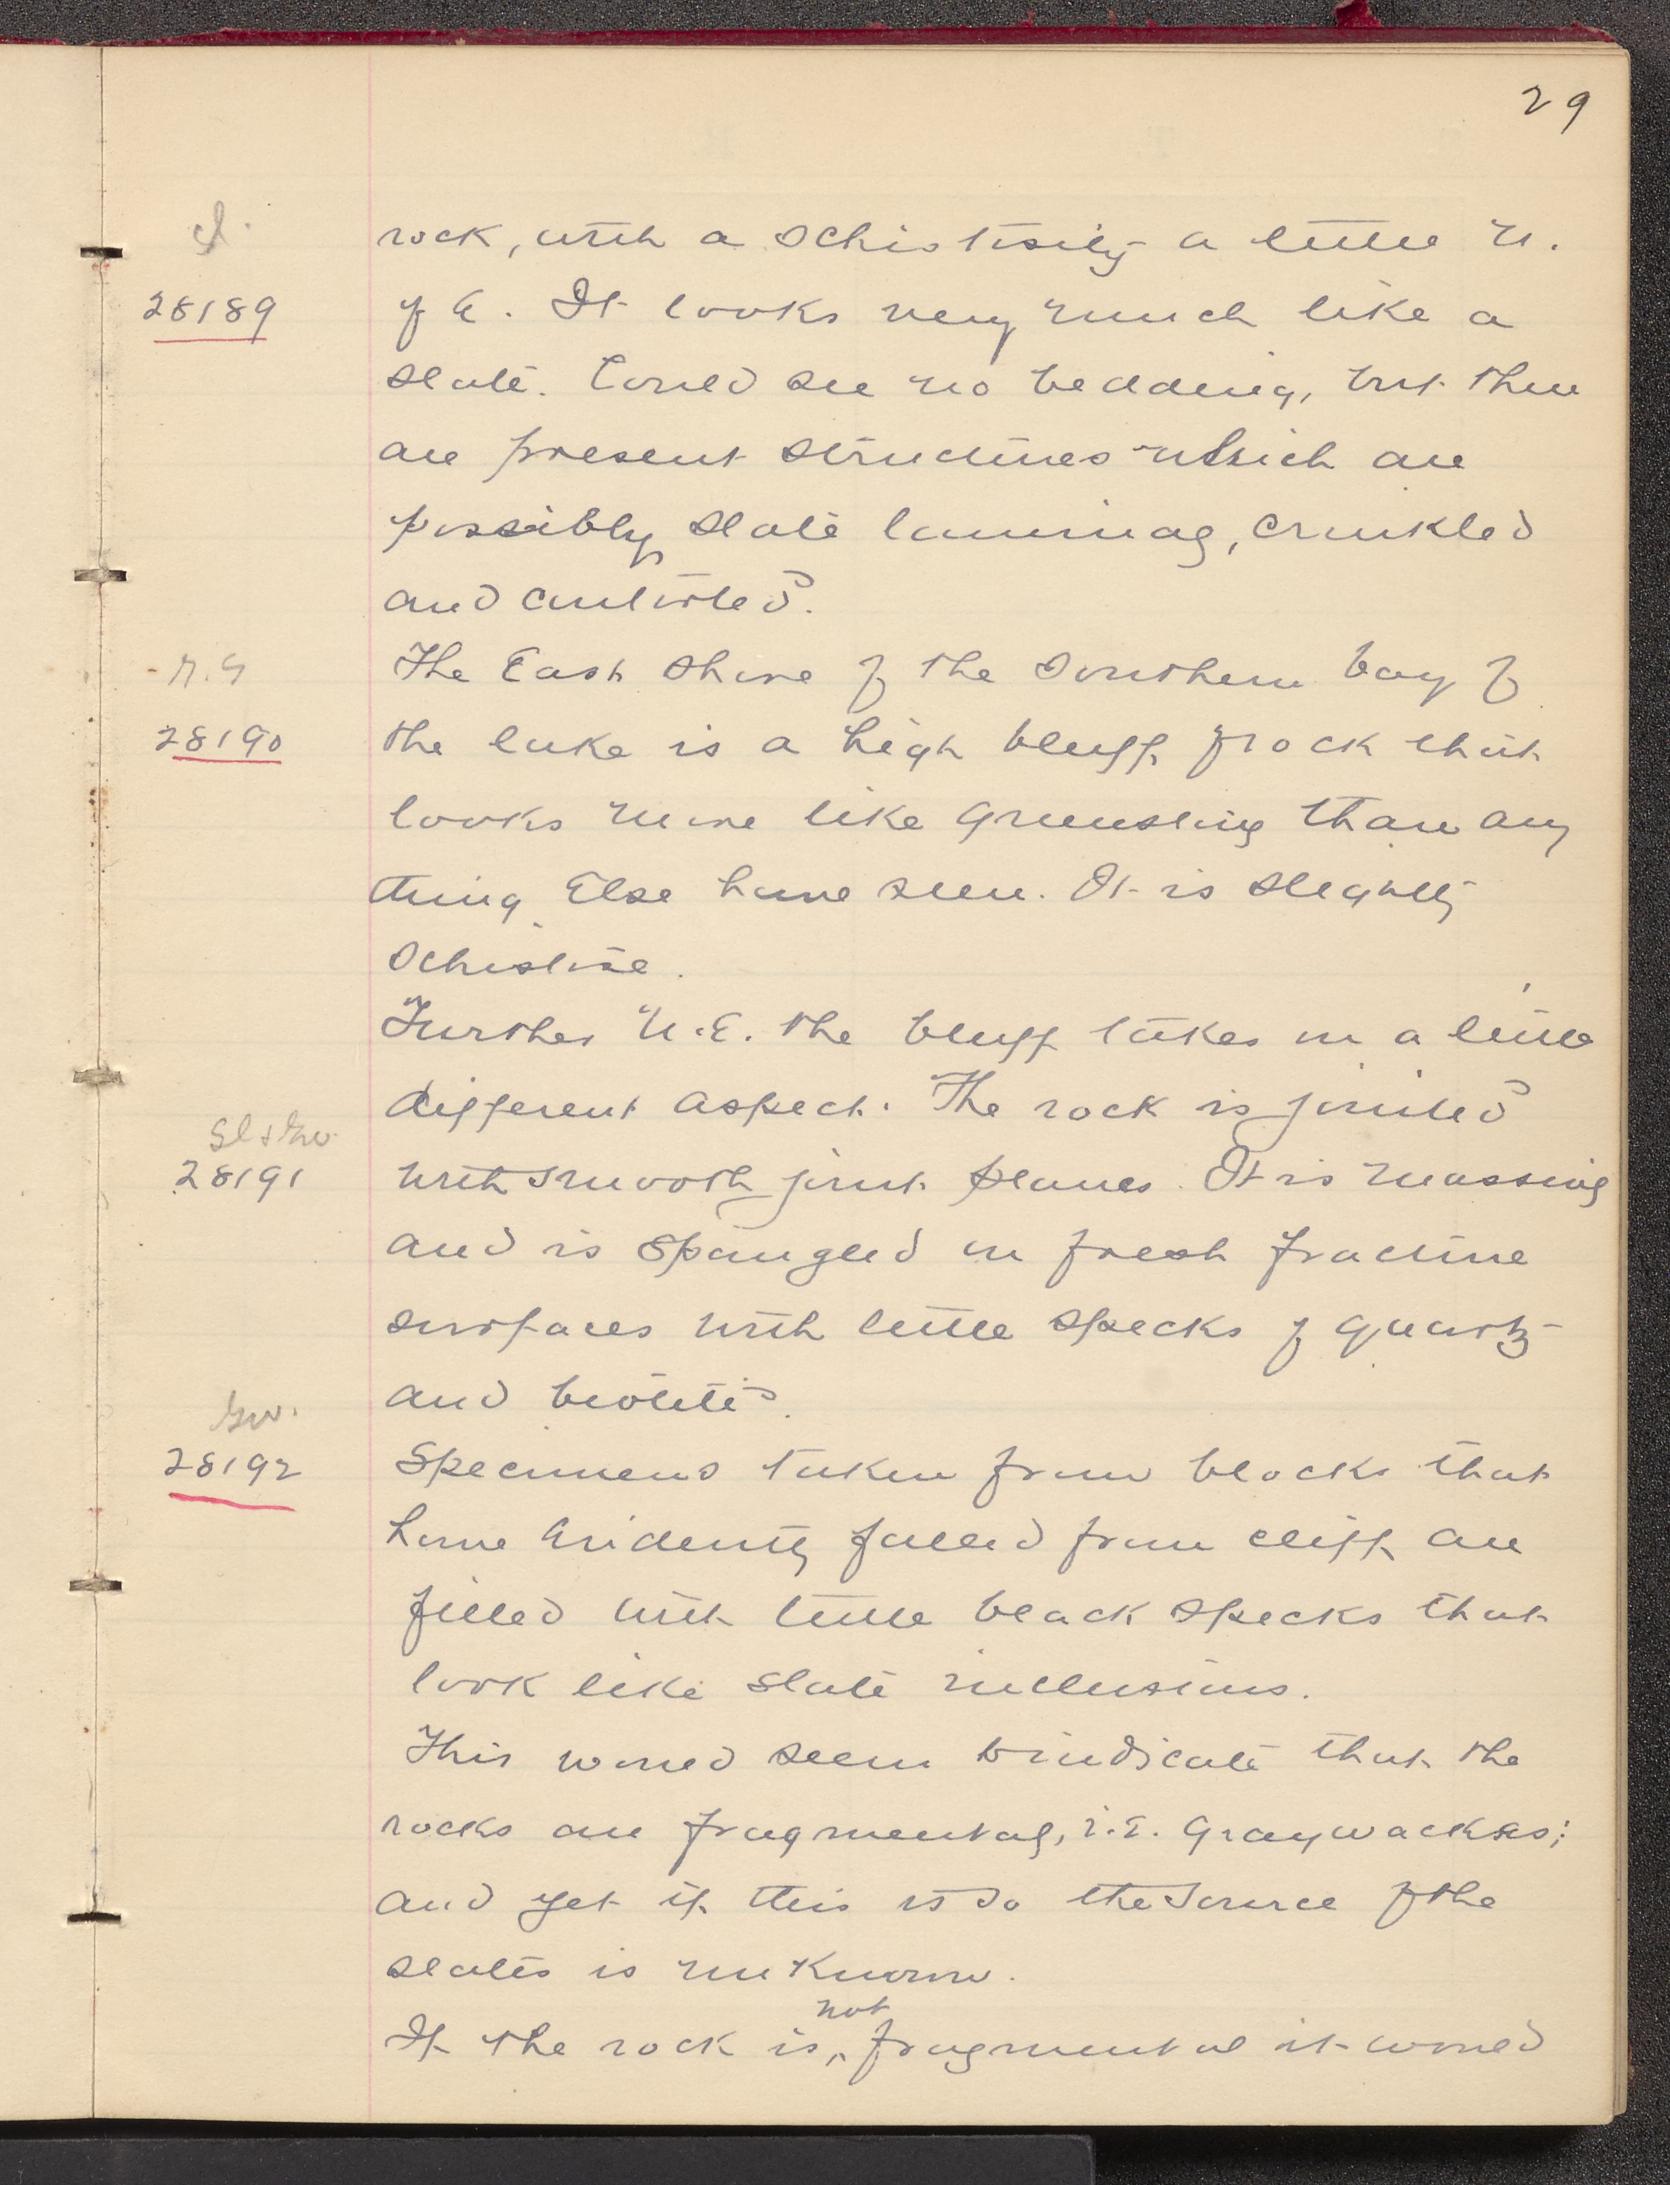 29
rock, with a schistosity a little N.
28189
of E. It looks very much like a
slate. Could see no bedding, but there
are present structures which are
possibly slate laminae, crinkled
and contorted.
The East shore of the Southern bay of
28190
the lake is a high bluff of rock that
looks more like Greenstone than any
thing Else have seen. It is slightly
schistose.
Further N.E. the bluff takes on a little
different aspect. The rock is jointed
Sl & Gw.
28191
with smooth joint planes. It is massive
and is spangled on fresh fracture
surfaces with little specks of quartz
and biotite.
Gw.
28192
Specimens taken from blocks that
have Evidently falled from cliff are
filled with little black specks that
look like slate inclusions.
This would seem to indicate that the
rocks are fragmental, i.E. Graywackes;
and yet if this is so the source of the
slates is unknown.
If the rock is not fragmental it would